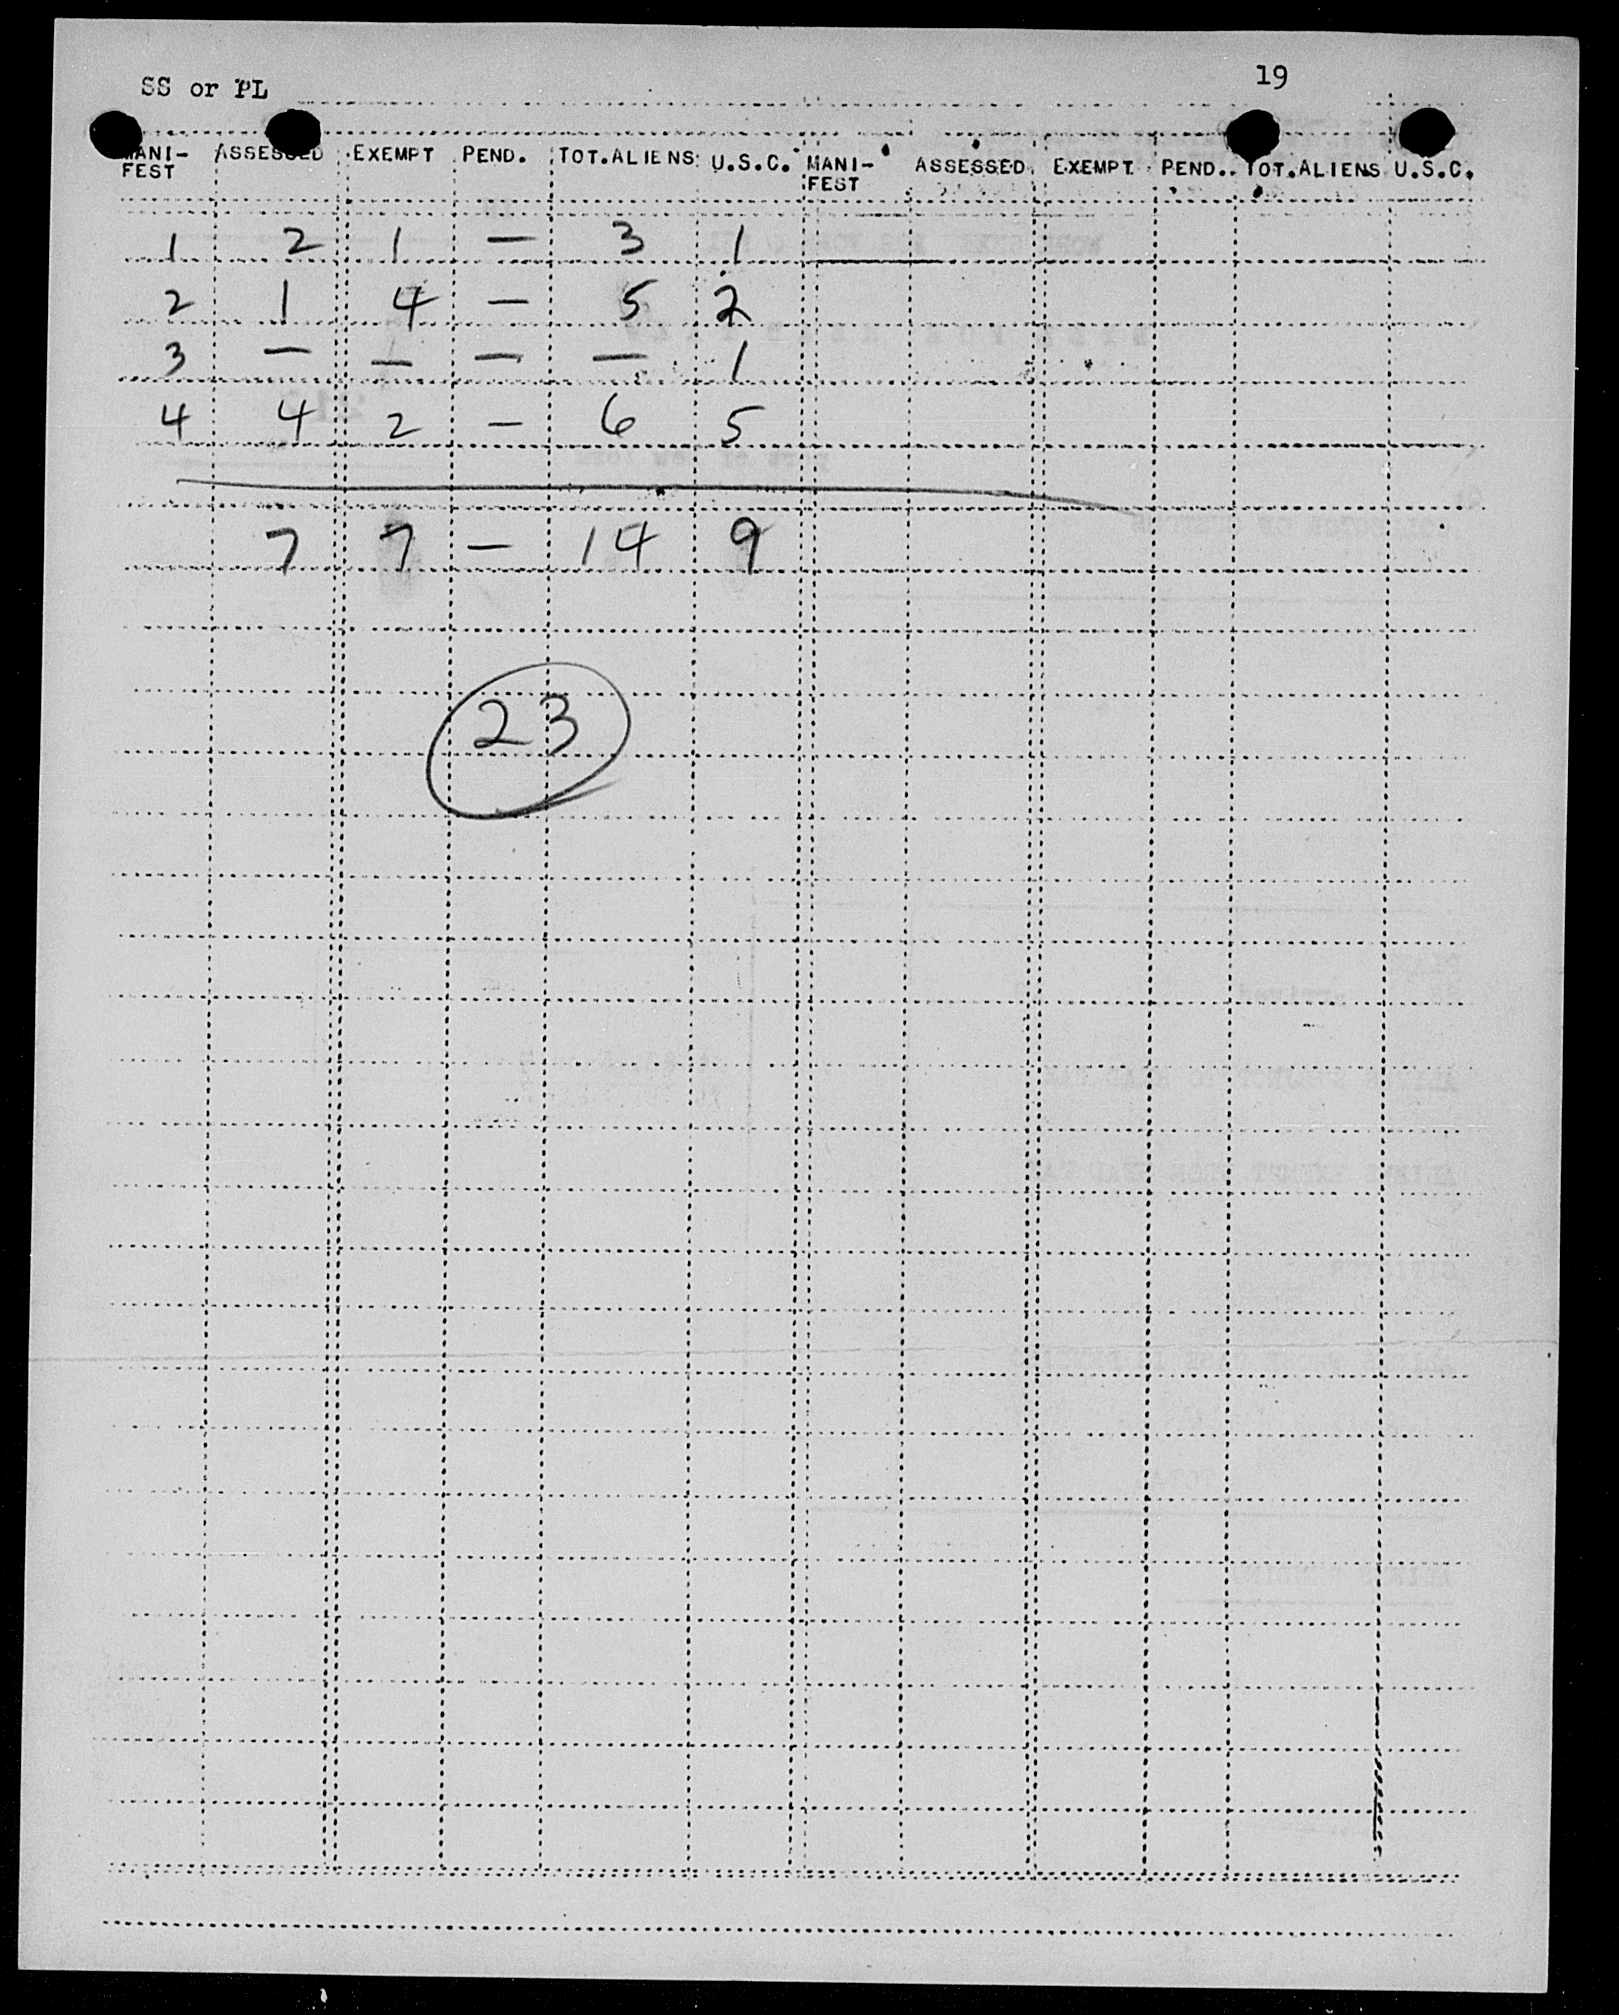 SS or PL 19
MANI- ASSESSED EXEMPT PEND. TOT.ALIENS U.S.C. MANI- ASSESSED EXEMPT PEND. TOT.ALIENS U.S.C.
FEST FEST
1 2 1 — 3 1
2 1 4 — 5 2
3 — — — — 1
4 4 2 — 6 5
7 7 — 14 9
23